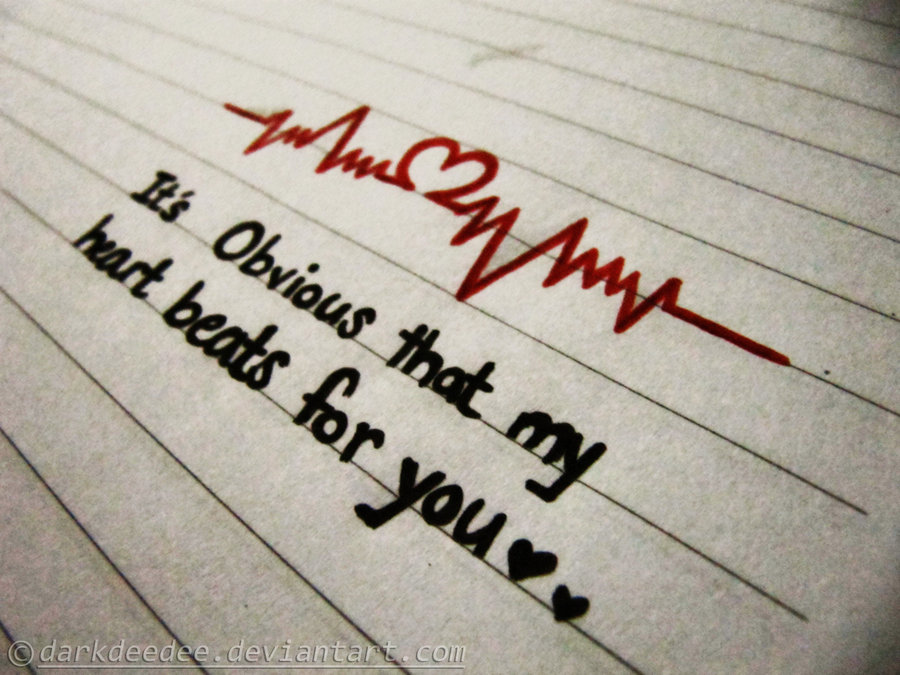 It's Obvious that my
heart beats for you
©darkdeedee.deviantart.com